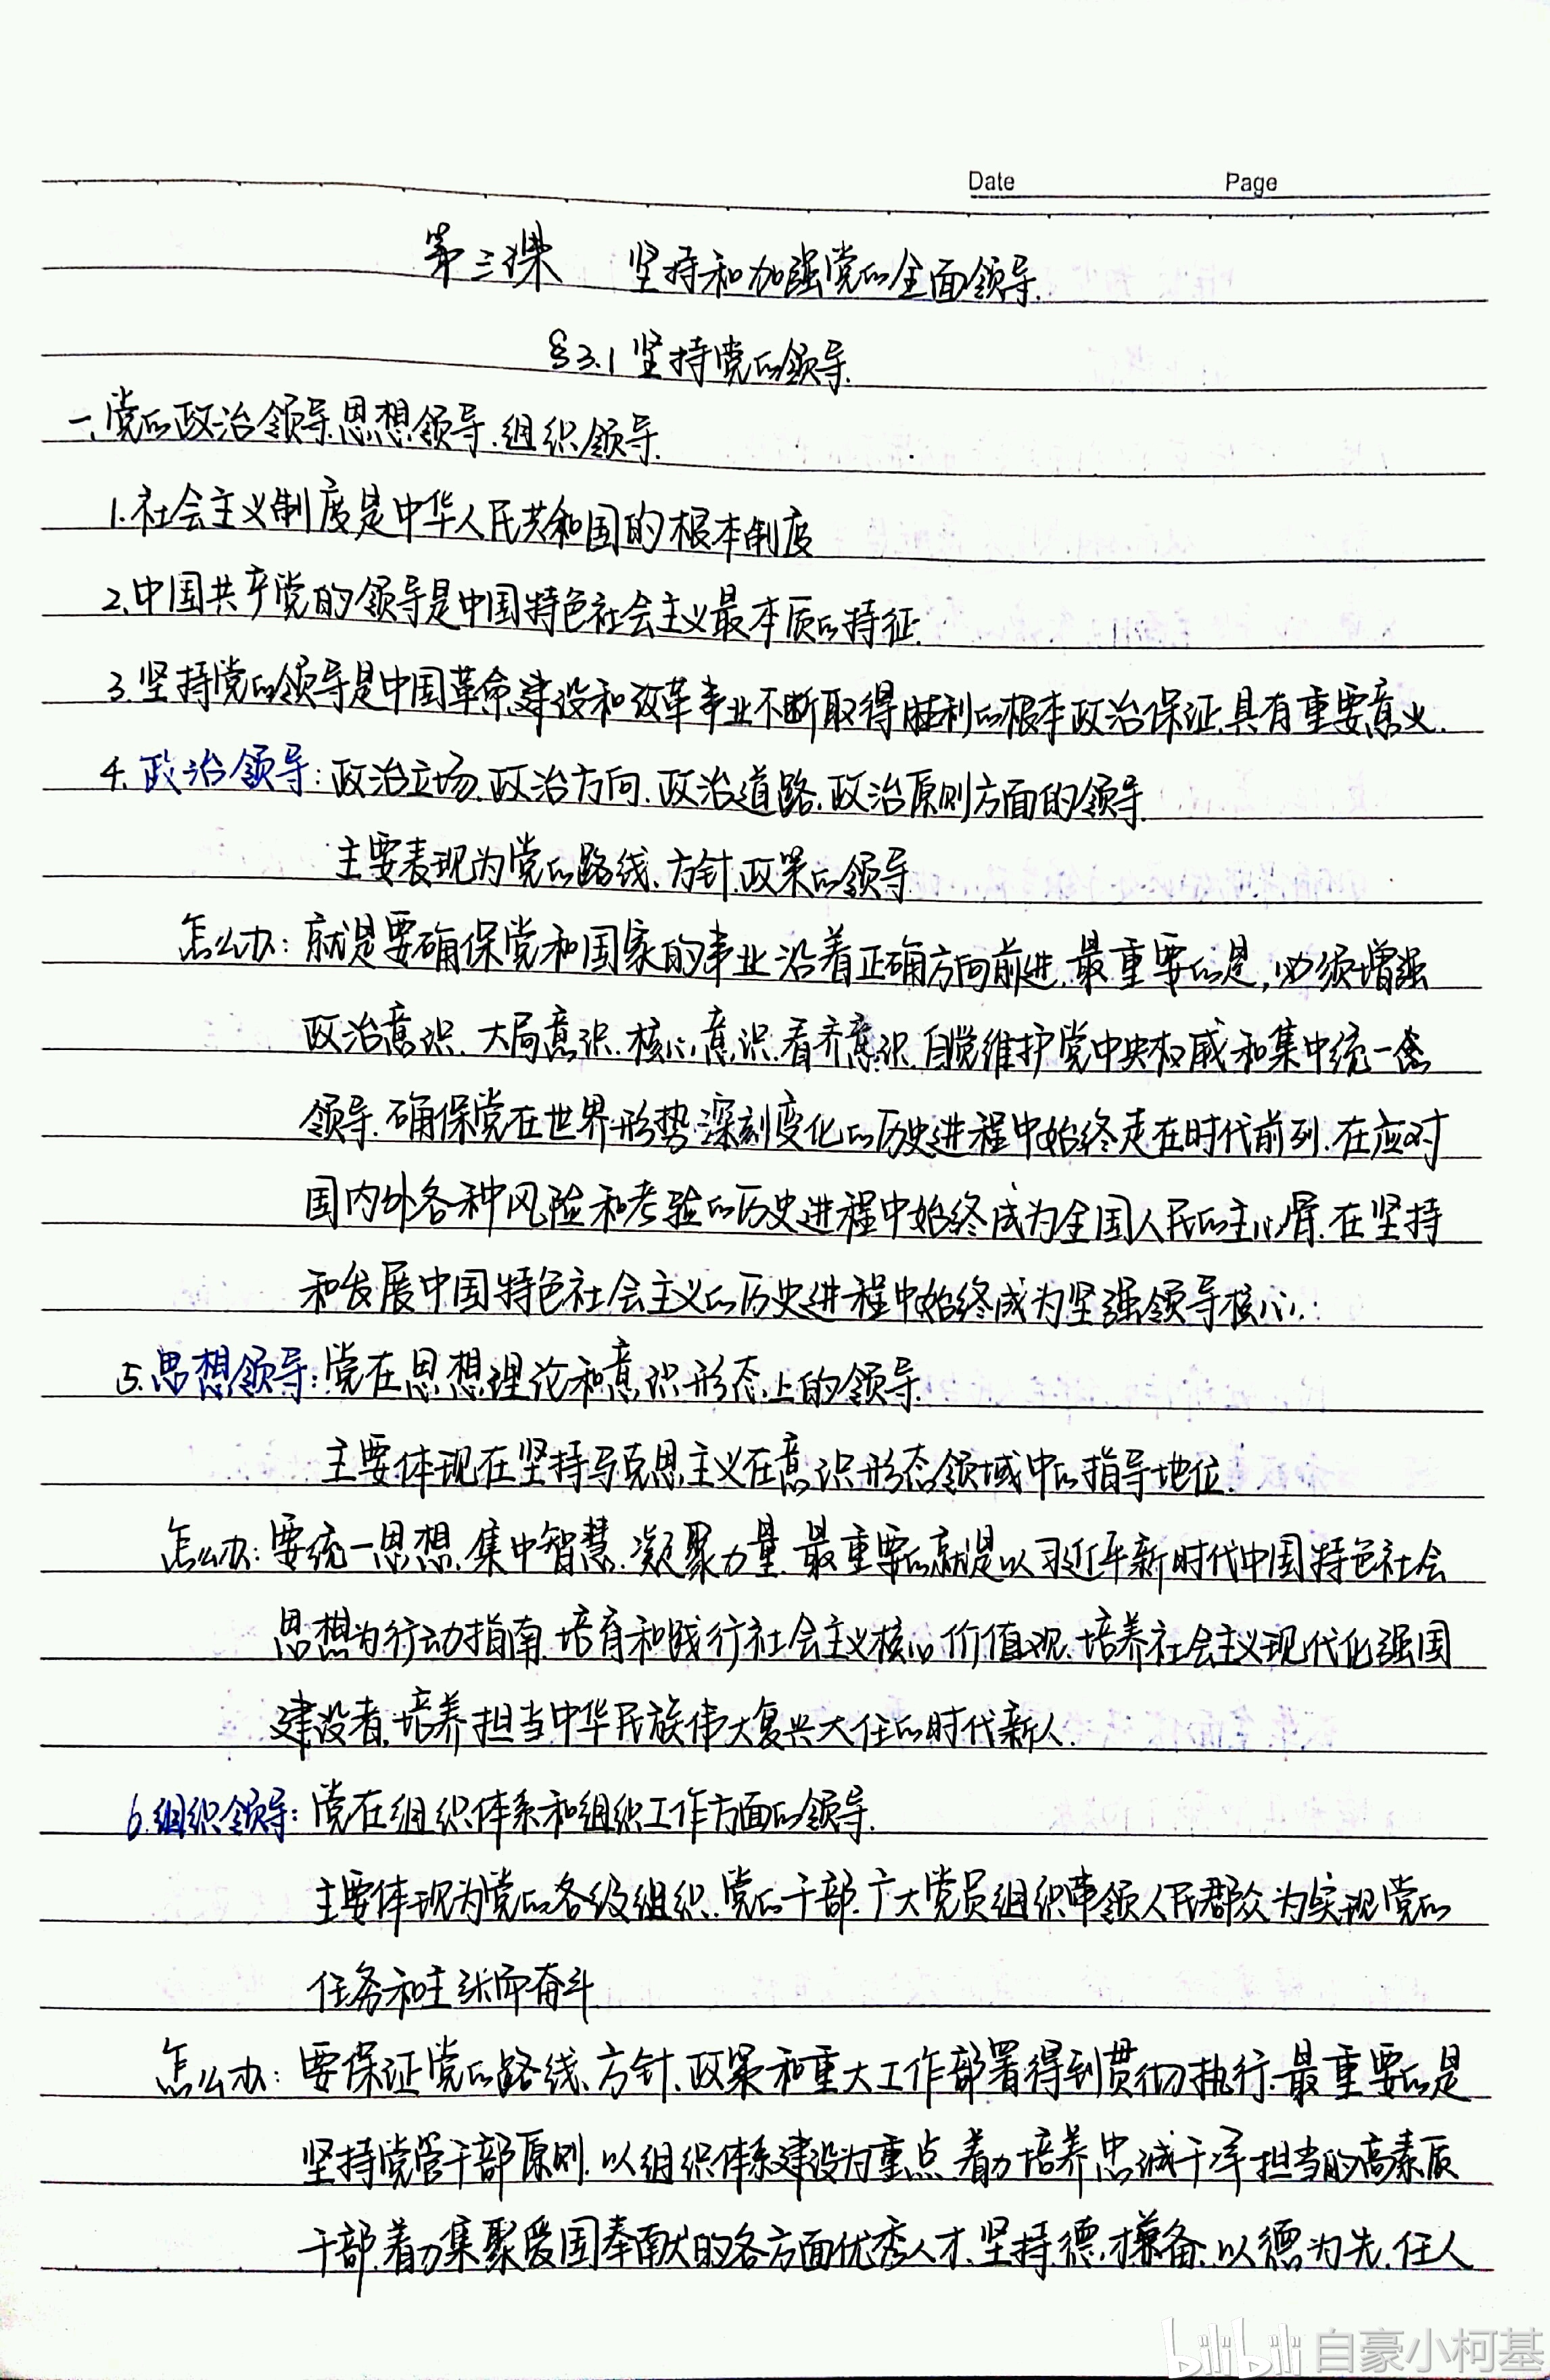 Date Page
第三课 坚持和加强党的全面领导.
§3.1 坚持党的领导.
一、党的政治领导、思想领导、组织领导.
1.社会主义制度是中华人民共和国的根本制度
2.中国共产党的领导是中国特色社会主义最本质的特征.
3.坚持党的领导是中国革命、建设和改革事业不断取得胜利的根本政治保证,具有重要意义.
4.政治领导:政治立场、政治方向、政治道路、政治原则方面的领导.
主要表现为党的路线、方针、政策的领导.
怎么办:就是要确保党和国家的事业沿着正确方向前进,最重要的是,必须增强
政治意识、大局意识、核心意识、看齐意识,自觉维护党中央权威和集中统一
领导.确保党在世界形势深刻变化的历史进程中始终走在时代前列.在应对
国内外各种风险和考验的历史进程中始终成为全国人民的主心骨.在坚持
和发展中国特色社会主义的历史进程中始终成为坚强领导核心.
5.思想领导:党在思想理论和意识形态上的领导.
主要体现在坚持马克思主义在意识形态领域中的指导地位.
怎么办:要统一思想、集中智慧、凝聚力量.最重要的就是以习近平新时代中国特色社会
思想为行动指南.培育和践行社会主义核心价值观.培养社会主义现代化强国
建设者,培养担当中华民族伟大复兴大任的时代新人.
6.组织领导:党在组织体系和组织工作方面的领导.
主要体现为党的各级组织、党的干部、广大党员组织带领人民群众为实现党的
任务和主张而奋斗
怎么办:要保证党的路线、方针、政策和重大工作部署得到贯彻执行.最重要的是
坚持党管干部原则.以组织体系建设为重点,着力培养忠诚干净担当的高素质
干部,着力集聚爱国奉献的各方面优秀人才,坚持德才兼备、以德为先、任人
bilibili 自豪小柯基